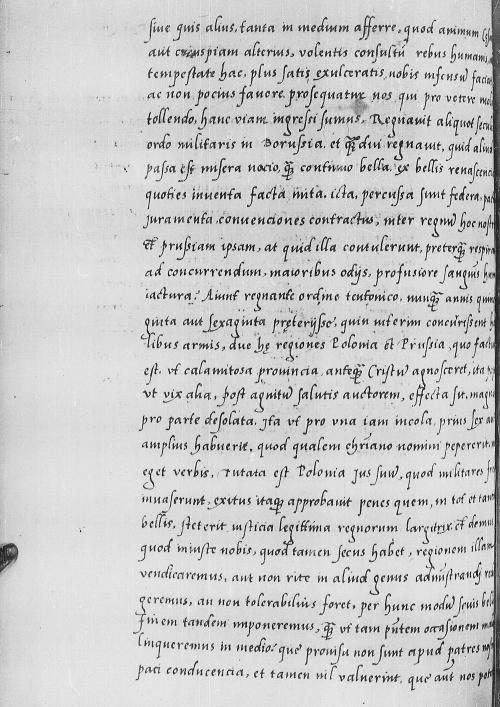 siue quis alius, tanta in medium afferre, quod animum
aut cuiuspiam alterius, volentis consultū rebus humanis
tempestate hac, plus satis exulceratis, nobis infensuʒ
ac non pocius fauore prosequatur nos, qui pro vetere
tollendo, hanc viam ingressi sumus. Regnauit aliquot
ordo militaris in Borussia, et qʒdiu regnauit, quid
passa est misera nacio, qʒ continuo bella, ex bellis
quoties inuenta facta inita, icta, percussa sunt federa,
juramenta, conuenciones contractus, inter regnuʒ hoc
Et prussiam ipsam, at quid illa contulerunt, preterqʒ
ad concurrendum, maioribus odijs, profusiore sanguis
iactura: Aiunt regnante ordine teutonico, nunqʒ annis
ginta aut sexaginta preterijsse, quin interim concurrissent
libus armis, due hę regiones Polonia et Prussia, quo
est, vt calamitosa prouincia, anteqʒ Cristuʒ agnosceret, ita
vt vix alia, post agnituʒ salutis auctorem, effecta sit,
pro parte desolata. Ita vt pro vna iam incola, prius sex
amplius habuerit, quod qualem chrīano nomini
eget verbis, tutata est Polonia jus suuʒ, quod militares
inuaserunt, exitus itaqʒ approbauit penes quem, in tot et
bellis, steterit iusticia legittima regnorum largitrix, et
quod iniuste nobis, quod tamen secus habet, regionem
vendicaremus, aut non rite in aliud genus admīstrandj
geremus, an non tolerabilius foret, per hunc moduʒ seuis
finem tandem imponeremus, qʒ vt tam pn̄tem occasionem
linqueremus in medio: que prouisu non sunt apud patres
paci conducencia, et tamen nil valuerint, que aut nos